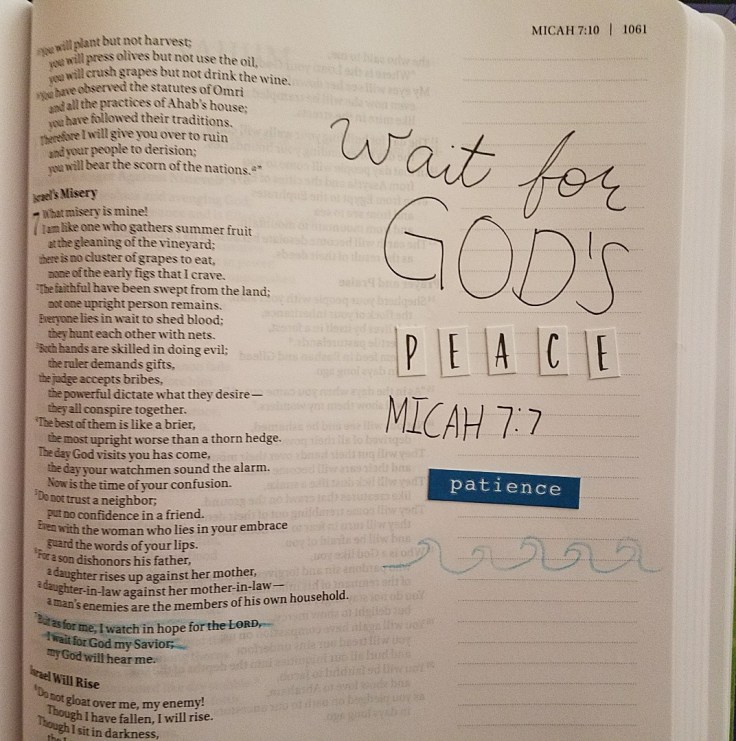 MICAH 7:10 | 1061
You will plant but not harvest;
you will press olives but not use the oil,
you will crush grapes but not drink the wine.
You have observed the statutes of Omri
and all the practices of Ahab's house;
you have followed their traditions.
Therefore I will give you over to ruin
and your people to derision;
you will bear the scorn of the nations.
Israel's Misery
7 What misery is mine!
I am like one who gathers summer fruit
at the gleaning of the vineyard;
there is no cluster of grapes to eat,
none of the early figs that I crave.
2 The faithful have been swept from the land;
not one upright person remains.
Everyone lies in wait to shed blood;
they hunt each other with nets.
3 Both hands are skilled in doing evil;
the ruler demands gifts,
the judge accepts bribes,
the powerful dictate what they desire—
they all conspire together.
4 The best of them is like a brier,
the most upright worse than a thorn hedge.
The day God visits you has come,
the day your watchmen sound the alarm.
Now is the time of your confusion.
5 Do not trust a neighbor;
put no confidence in a friend.
Even with the woman who lies in your embrace
guard the words of your lips.
6 For a son dishonors his father,
a daughter rises up against her mother,
a daughter-in-law against her mother-in-law—
a man's enemies are the members of his own household.
7 But as for me, I watch in hope for the LORD,
I wait for God my Savior;
my God will hear me.
Israel Will Rise
8 Do not gloat over me, my enemy!
Though I have fallen, I will rise.
Though I sit in darkness,
wait for
GOD'S
PEACE
MICAH 7:7
patience